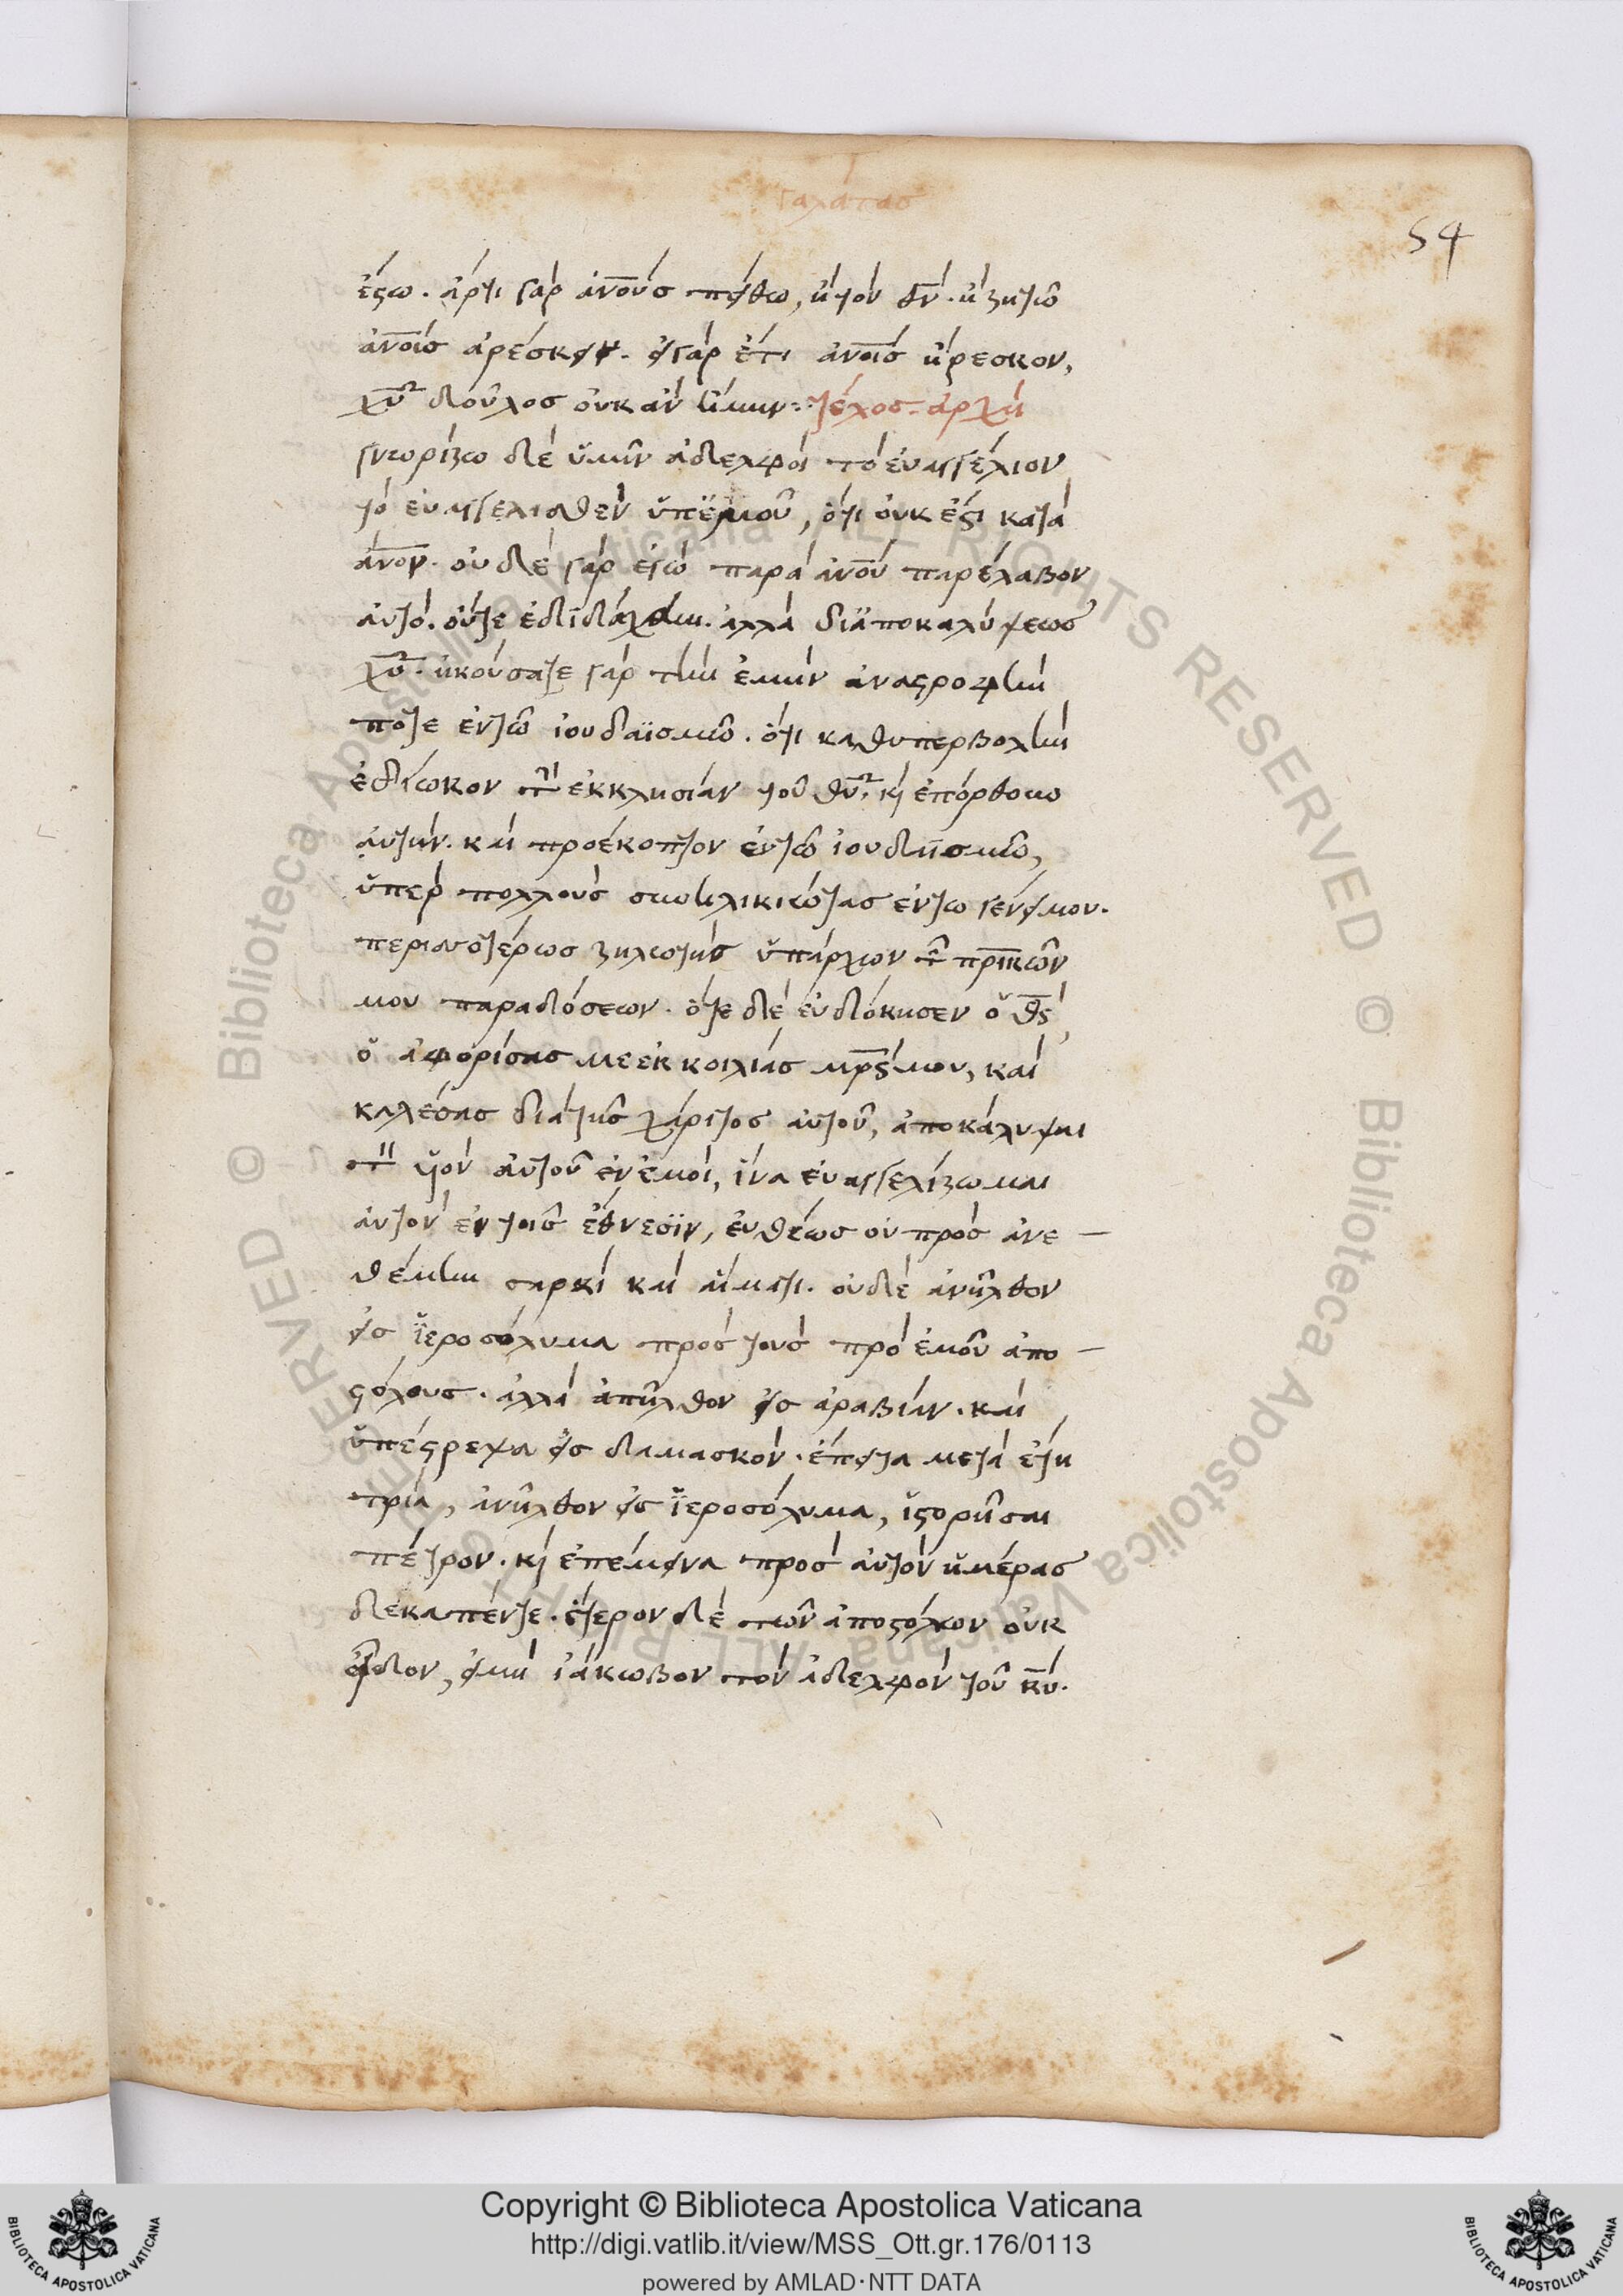 γαλάτας
54
ἔστω. ἄρτι γὰρ ἀν̅ους πείθω, ἢ τὸν θ̅ν. ἢ ζητῶ
ἀν̅οις ἀρέσκειν. εἰ γὰρ ἔτι ἀν̅οις ἤρεσκον,
χ̅υ δοῦλος οὐκ ἂν ἤμην: τέλος. ἀρχή
γνωρίζω δὲ ὑμῖν ἀδελφοὶ τὸ εὐαγγέλιον
τὸ εὐαγγελισθὲν ὑπ' ἐμοῦ, ὅτι οὐκ ἔστι κατὰ
ἄν̅ον. οὐδὲ γὰρ ἐγὼ παρὰ ἀν̅ου παρέλαβον
αὐτό. οὔτε ἐδιδάχθην. ἀλλὰ δι' ἀποκαλύψεως
χ̅υ. ἠκούσατε γὰρ τὴν ἐμὴν ἀναστροφὴν
ποτε ἐν τῶ ἰουδαϊσμῶ. ὅτι καθυπερβολὴν
ἐδίωκον τὴν ἐκκλησίαν τοῦ θ̅υ. κ̀ ἐπόρθουν
αὐτήν. καὶ προέκοπτον ἐν τῶ ἰουδαϊσμῶ,
ὑπὲρ πολλοὺς συνηλικιώτας ἐν τῶ γένει μου.
περισσοτέρως ζηλωτὴς ὑπάρχων τῶν π̅ρικῶν
μου παραδόσεων. ὅτε δὲ εὐδόκησεν ὁ θ̅ς
ὁ ἀφορίσας με ἐκ κοιλίας μ̅ρς μου, καὶ
καλέσας διὰ τῆς χάριτος αὐτοῦ, ἀποκάλυψαι
τὸν υἱὸν αὐτοῦ ἐν ἐμοί, ἵνα εὐαγγελίζωμαι
αὐτὸν ἐν τοῖς ἔθνεσϊν, εὐθέως οὐ προσ ἀνε-
θέμην σαρκὶ καὶ αἵματι. οὐδὲ ἀνῆλθον
εἰς ἱεροσόλυμα πρὸς τοὺς πρὸ ἐμοῦ ἀπο-
στόλους. ἀλλὰ ἀπῆλθον εἰς ἀραβίαν. καὶ
ὑπέστρεψα εἰς δαμασκόν. ἔπειτα μετὰ ἔτη
τρία, ἀνῆλθον εἰς ἱεροσόλυμα, ἱστορῆσαι
πέτρον. κ̀ ἐπέμεινα πρὸς αὐτὸν ἡμέρας
δεκαπέντε. ἕτερον δὲ τῶν ἀποστόλων οὐκ
εἶδον, εἰ μὴ ἰάκωβον τὸν ἀδελφὸν τοῦ κ̅υ.
Copyright © Biblioteca Apostolica Vaticana
http://digi.vatlib.it/view/MSS_Ott.gr.176/0113
powered by AMLAD·NTT DATA
BIBLIOTECA APOSTOLICA VATICANA
BIBLIOTECA APOSTOLICA VATICANA